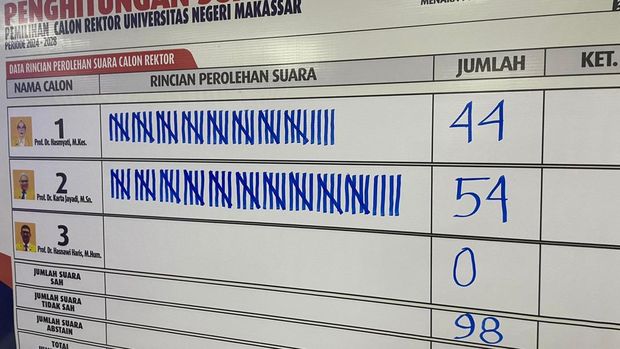 PENGHITUNGAN
PEMILIHAN CALON REKTOR UNIVERSITAS NEGERI MAKASSAR
PERIODE 2024 - 2028
DATA RINCIAN PEROLEHAN SUARA CALON REKTOR
NAMA CALON RINCIAN PEROLEHAN SUARA JUMLAH KET.
1 44
Prof. Dr. Hasmyati, M.Kes.
2 54
Prof. Dr. Karta Jayadi, M.Sn.
3 0
Prof. Dr. Hasnawi Haris, M.Hum.
JUMLAH SUARA
SAH
JUMLAH SUARA
TIDAK SAH
JUMLAH SUARA 98
ABSTAIN
TOTAL